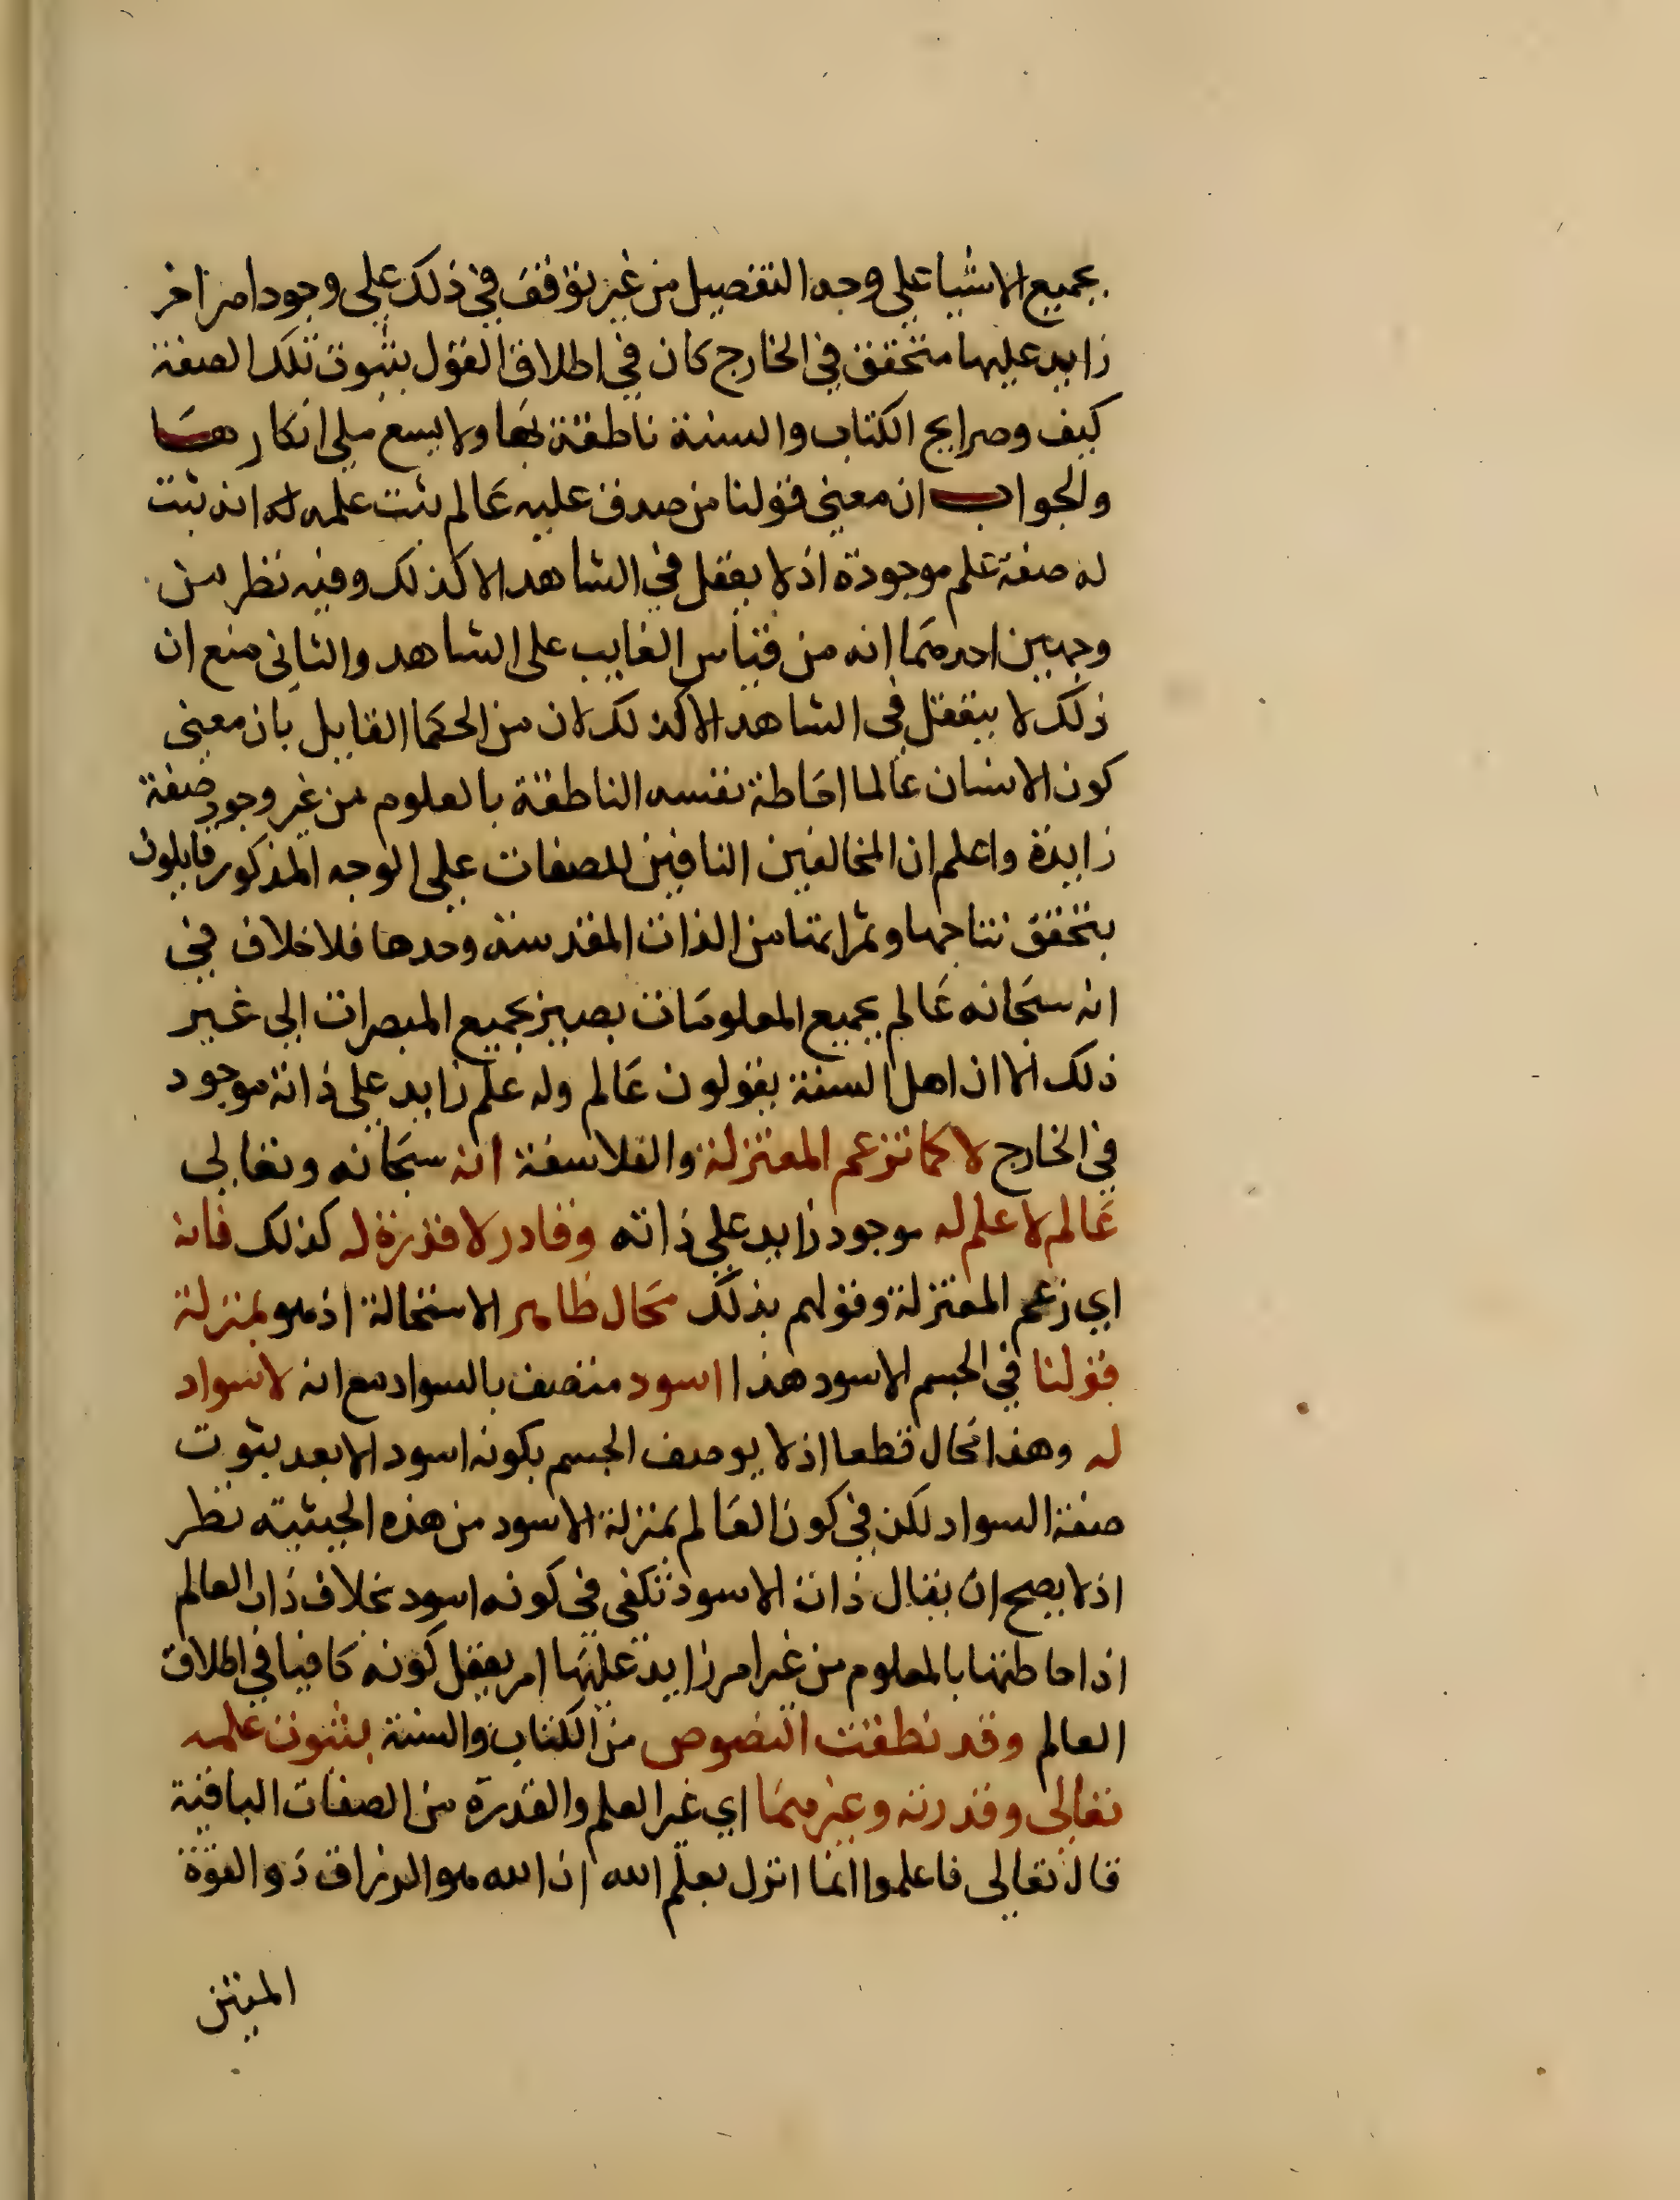 بجميع الاشيا علي وجه التفصيل من غير توقف في ذلك علي وجود امر اخر
زايد عليها متحقق في الخارج كان في اطلاق القول بثبوت تلك الصفة
كيف وصرايح الكتاب والسنة ناطقة بها ولا يسع ملي انكارها
والجواب ان معني قولنا من صدق عليه عالم ثبت علمه له انه ثبت
له صفة علم موجودة اذ لا يعقل في الشاهد الا كذلك وفيه نظر من
وجهين احدهما انه من قياس الغايب على الشاهد والثاني منع ان
ذلك لا يتعقل في الشاهد الا كذلك لان من الحكما القايل بان معني
كون الانسان عالما احاطة نفسه الناطقة بالعلوم من غير وجود صفة
زايدة واعلم ان المخالفين النافين للصفات علي الوجه المذكور قايلون
بتحقق نتاجها وثمراتها من الذات المقدسة وحدها فلا خلاف في
انه سبحانه عالم بجميع المعلومات بصير بجميع المبصرات الي غير
ذلك الا ان اهل السنة يقولون عالم وله علم زايد علي ذاته موجود
في الخارج لا كما تزعم المعتزلة والفلاسفة انه سبحانه وتعالي
عالم لا علم له موجود زايد علي ذاته وقادر لا قدرة له كذلك فانه
اي زعم المعتزلة وقولهم بذلك محال ظاهر الاستحالة اذ هو بمنزلة
قولنا في الجسم الاسود هذا اسود متصف بالسواد مع انه لا سواد
له وهذا محال قطعا اذ لا يوصف الجسم بكونه اسود الا بعد ثبوت
صفة السواد لكن في كون العالم بمنزلة الاسود من هذه الحيثية نظر
اذ لا يصح ان يقال ذات الاسود تكفي في كونه اسود بخلاف ذات العالم
اذ احاطتها بالمعلوم من غير امر زايد عليها امر يعقل كونه كافيا في اطلاق
العالم وقد نطقت النصوص من الكتاب والسنة بثبوت علمه
تعالى وقدرته وغيرهما اي غير العلم والقدرة من الصفات الباقية
قال تعالى فاعلموا انما انزل بعلم الله ان الله هو الرزاق ذو القوة
المتين